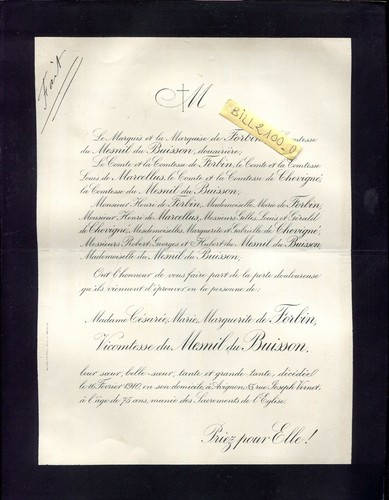 Fait
M
BILL2100_0
Le Marquis et la Marquise de Forbin, la Vicomtesse
du Mesnil du Buisson, douairière,
Le Comte et la Comtesse de Forbin, le Comte et la Comtesse
Louis de Marcellus, le Comte et la Comtesse de Chevigné,
la Comtesse du Mesnil du Buisson,
Monsieur Henri de Forbin, Mademoiselle Marie de Forbin,
Monsieur Henri de Marcellus, Messieurs Gilles, Louis et Gérald
de Chevigné, Mesdemoiselles Marguerite et Gabrielle de Chevigné,
Messieurs Robert, Georges et Hubert du Mesnil du Buisson
Mademoiselle du Mesnil du Buisson,
Ont l'honneur de vous faire part de la perte douloureuse
qu'ils viennent d'éprouver en la personne de:
Madame Césarie, Marie, Marguerite de Forbin,
Vicomtesse du Mesnil du Buisson,
leur sœur, belle-sœur, tante et grande tante, décédée
le 16 Février 1910, en son domicile, à Avignon, rue Joseph Vernet,
à l'âge de 75 ans, munie des Sacrements de l'Eglise.
Priez pour Elle!